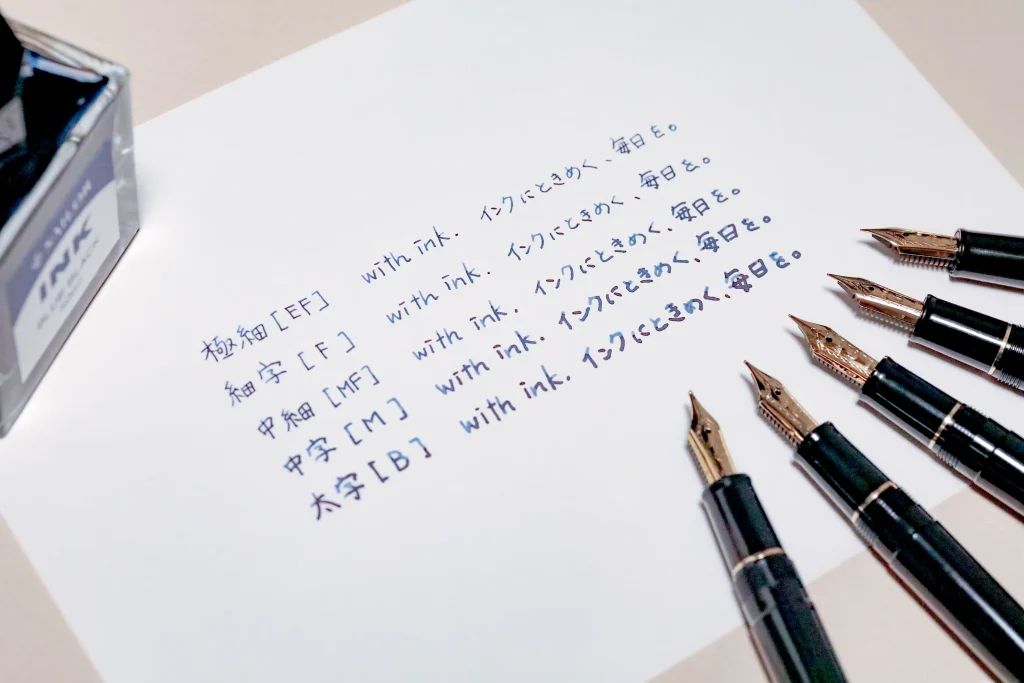 SAILOR
INK
BLUE BLACK
極細[EF] with ink. インクにときめく、毎日を。
細字[F] with ink. インクにときめく、毎日を。
中細[MF] with ink. インクにときめく、毎日を。
中字[M] with ink. インクにときめく、毎日を。
太字[B] with ink. インクにときめく、毎日を。